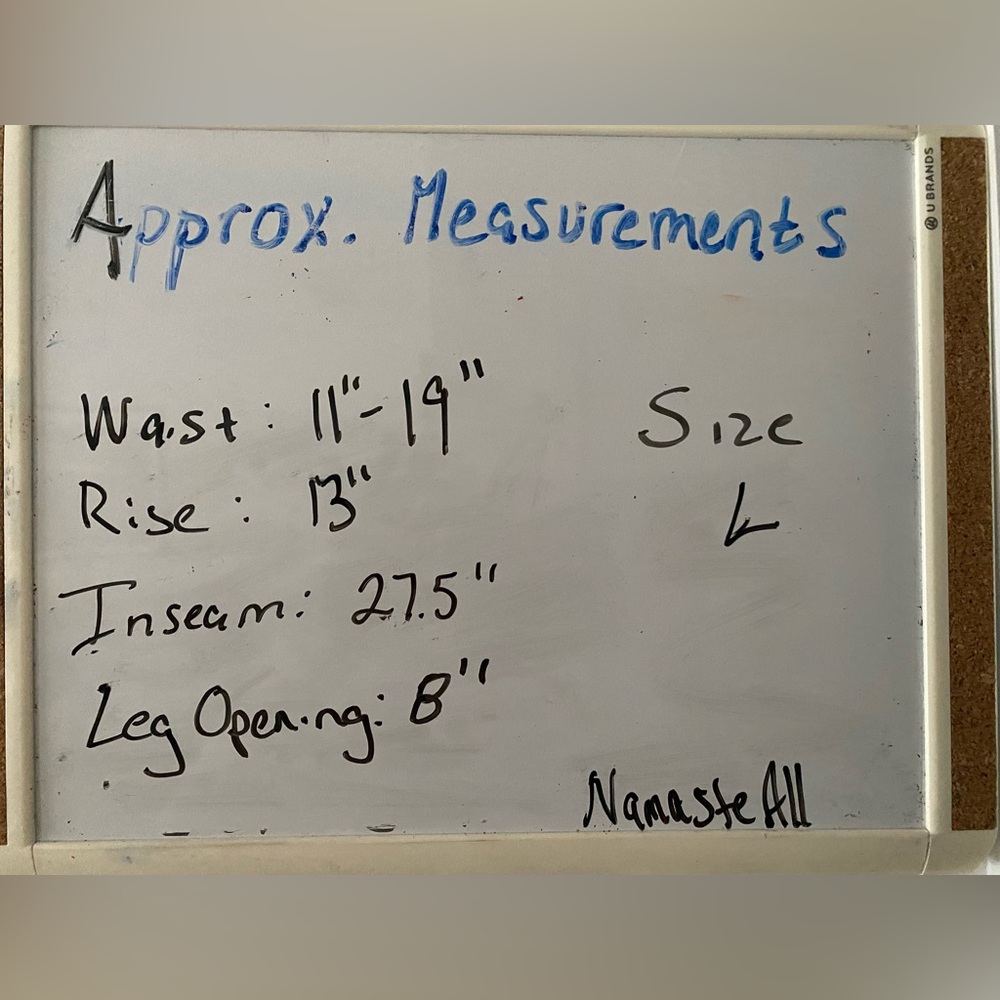 Approx. Measurements
Wast: 11"-19"
Size
Rise: 13"
L
Inseam: 27.5"
Leg Opening: 8"
NamasteAll
U BRANDS